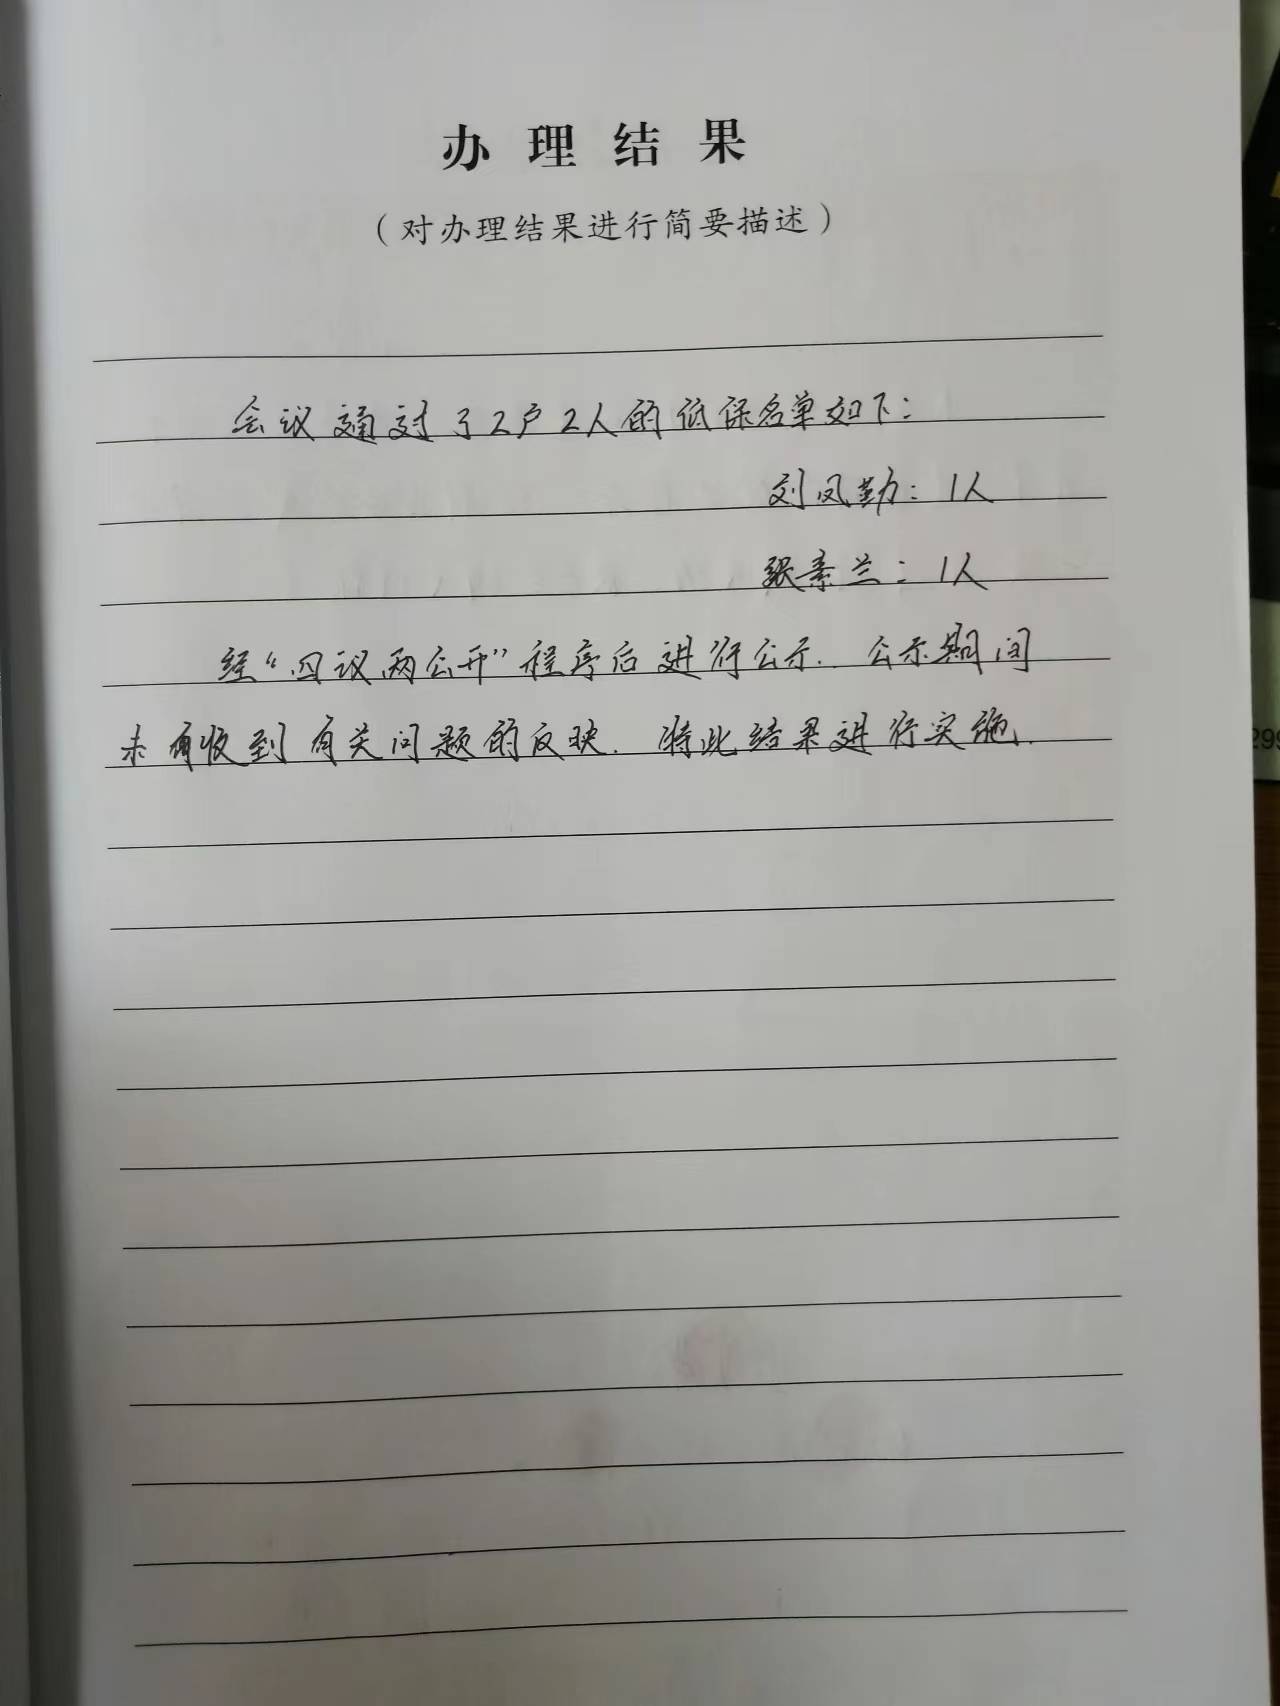 办理结果
（对办理结果进行简要描述）
会议通过了2户2人的低保名单如下：
刘凤勤：1人
张素兰：1人
经“四议两公开”程序后进行公示．公示期间
未有收到有关问题的反映．将此结果进行实施．
299